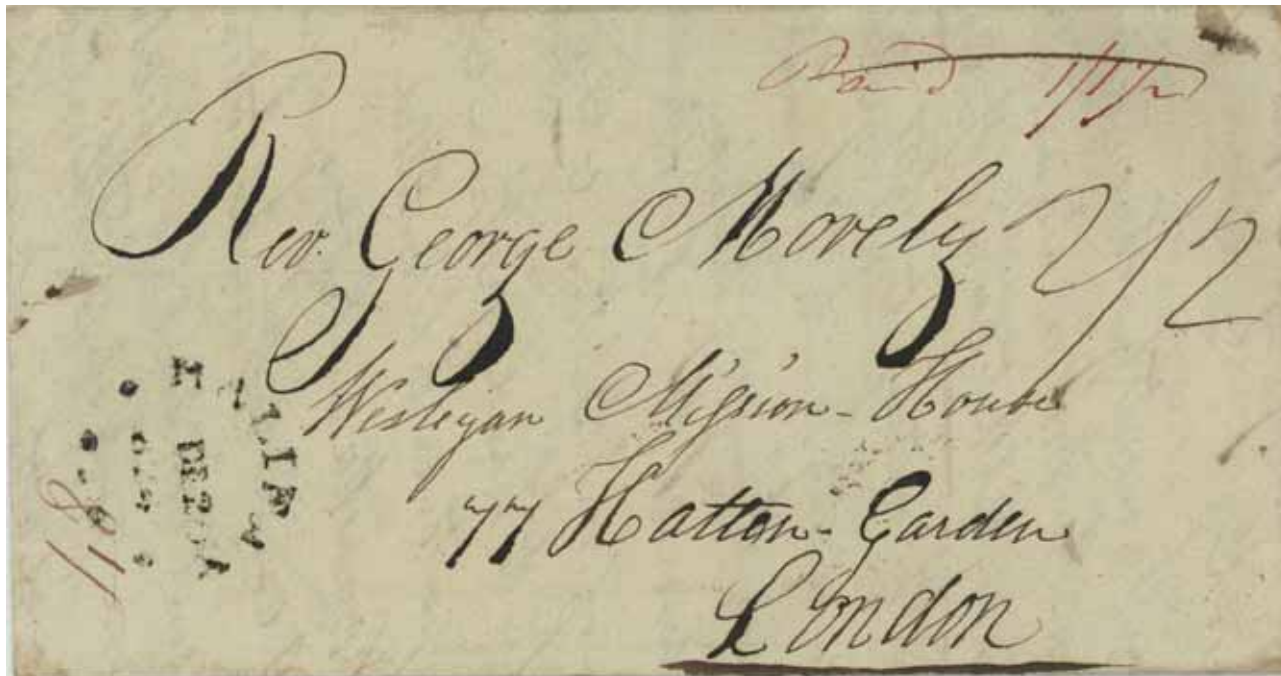 Paid 1/1½
Rev. George Morely 2/2
Wesleyan Mission-House
77 Hatton-Garden
London
118